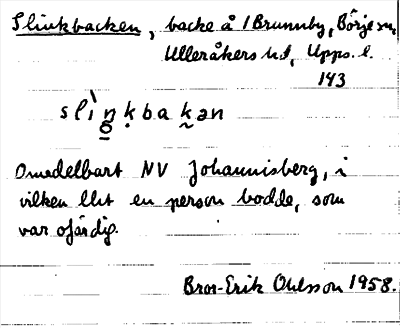 Slinkbacken, backe å 1 Brunnby, Börje sn,
Ulleråkers hd, Upps. l.
143
slìŋkbakan
Omedelbart NV Johannisberg, i
vilken en person bodde, som
var ofärdig.
Bror-Erik Ohlsson 1958.